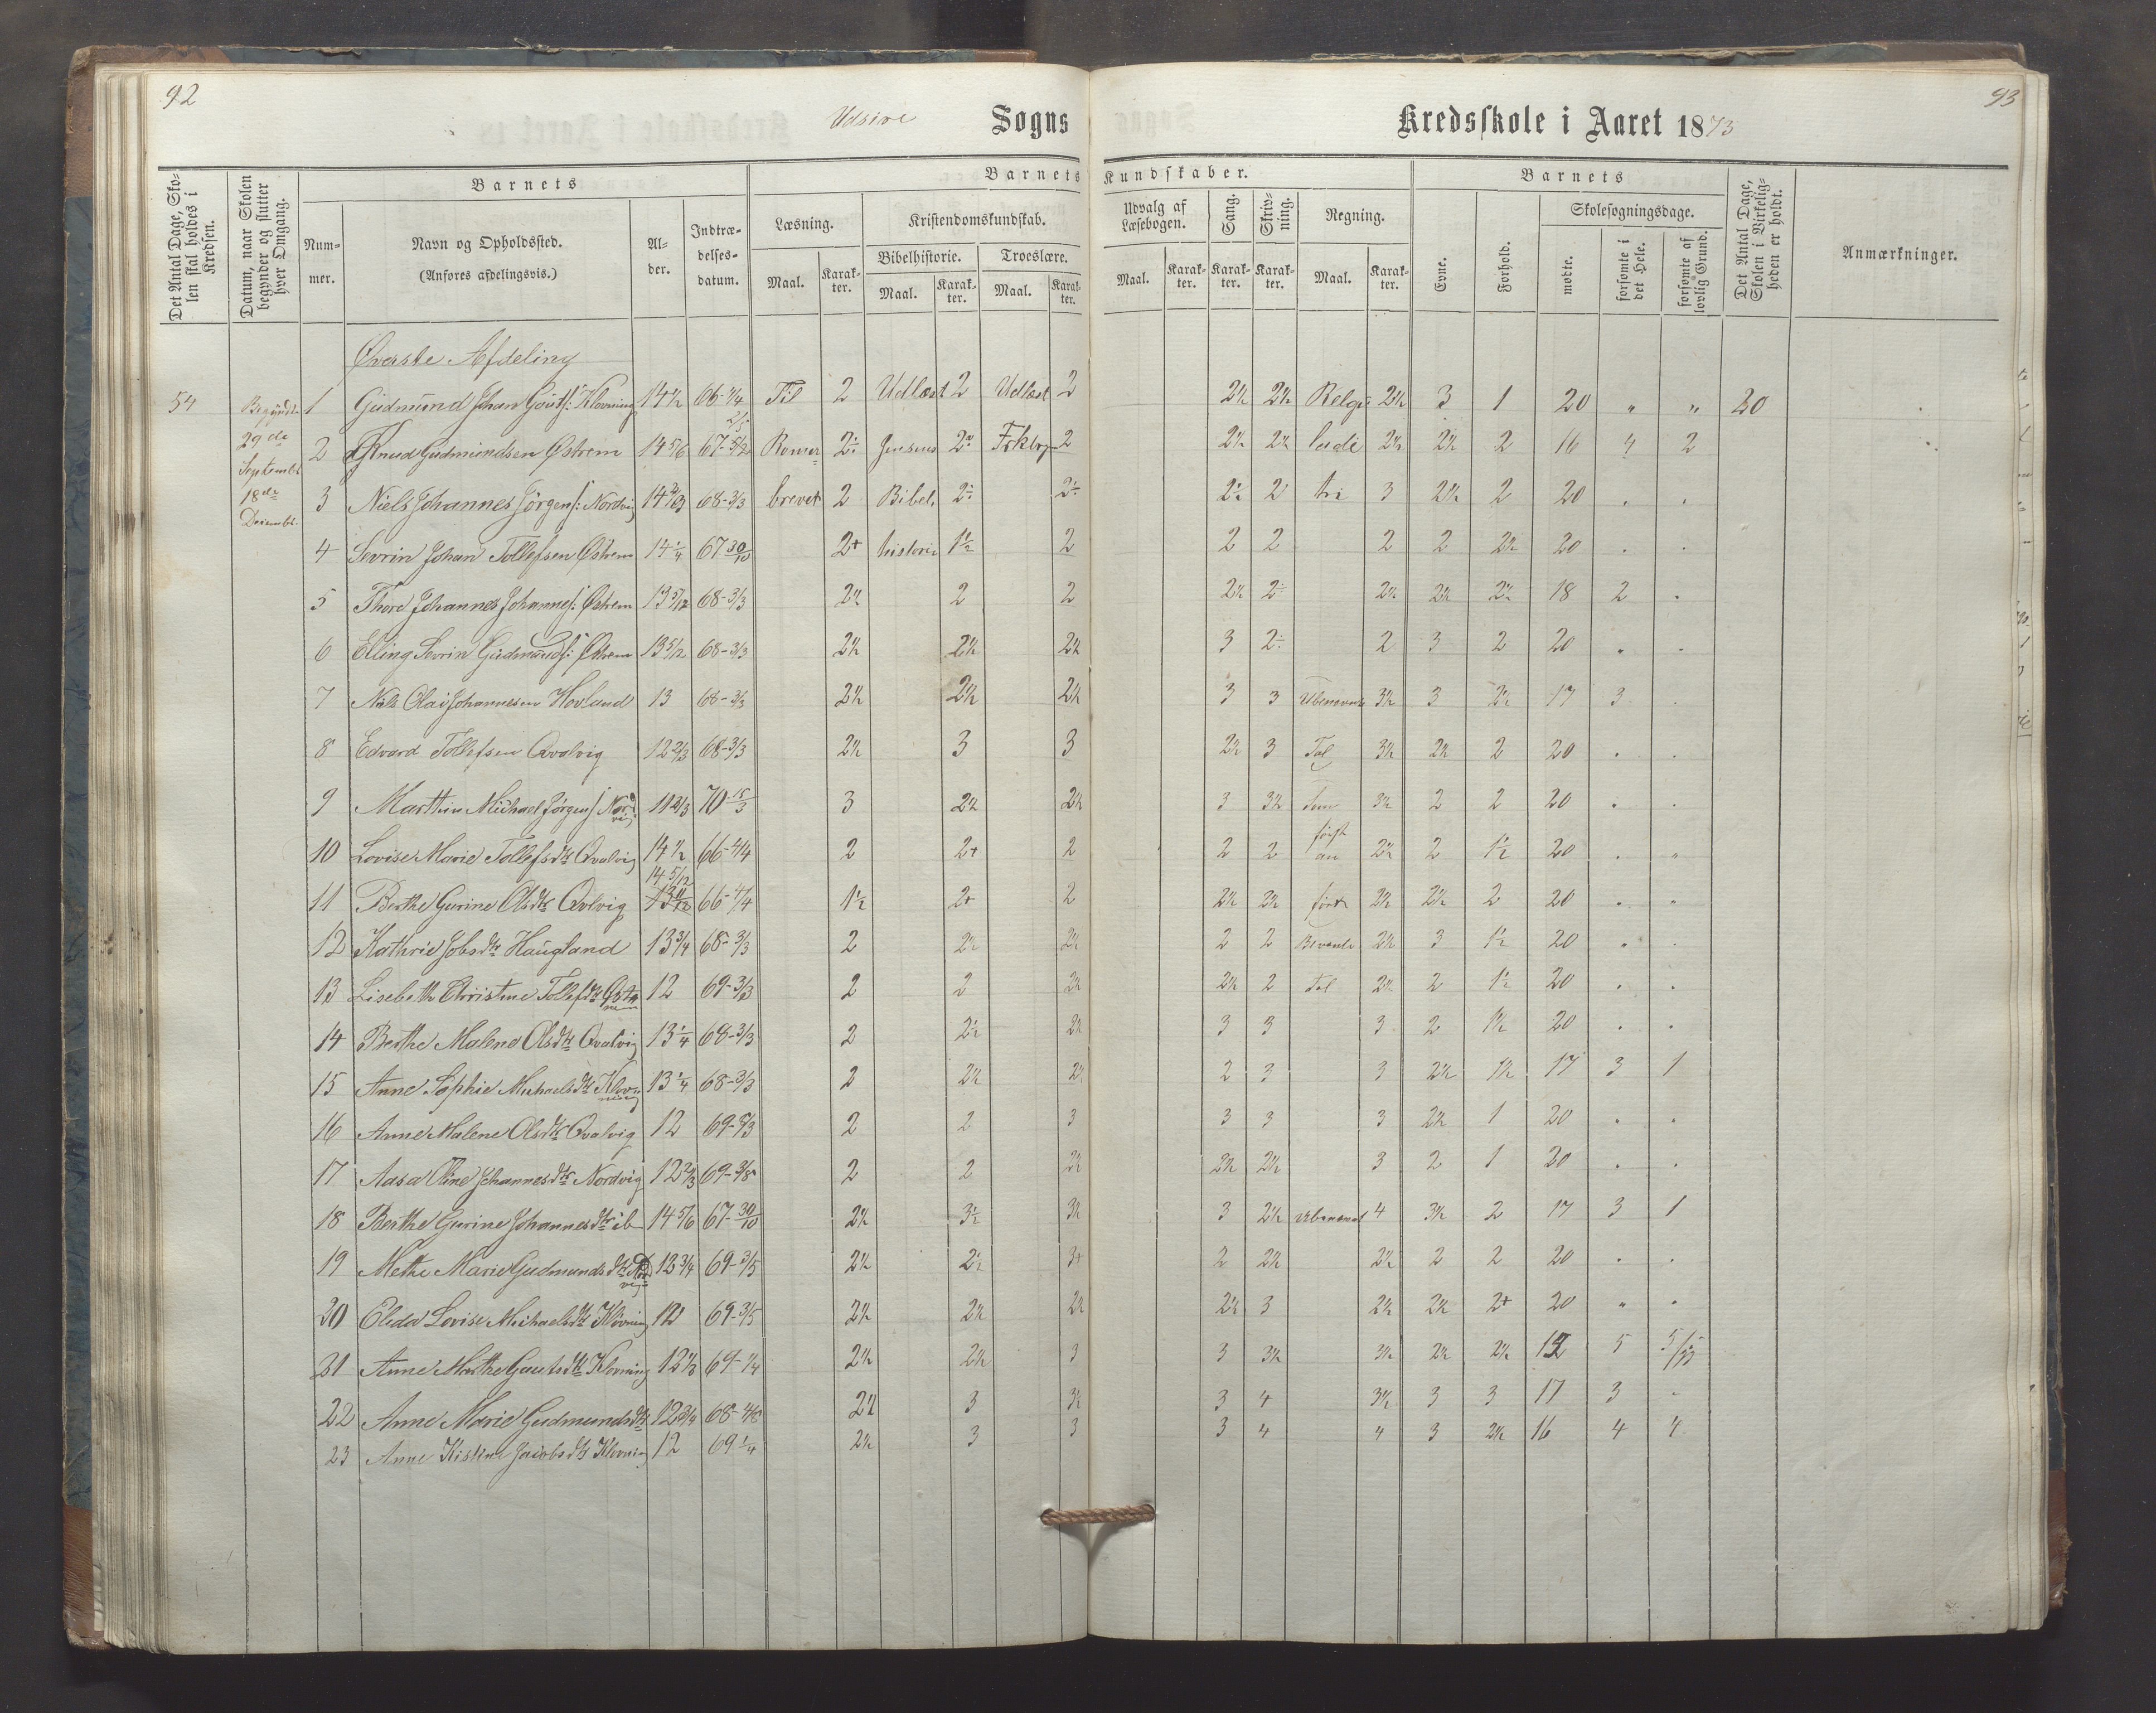 92
93
Udsire Sogns Kredsskole i Aaret 1873
Det Antal Dage, Skolen skal holdes i Kredsen.
Datum, naar Skolen begynder og slutter hver Omgang.
Barnets
Nummer.
Navn og Opholdssted. (Anføres afdelingsvis.)
Alder.
Indtrædelsesdatum.
Barnets Kundskaber.
Læsning.
Maal.
Karakter.
Kristendomskundskab.
Bibelhistorie.
Maal.
Karakter.
Troeslære.
Maal.
Karakter.
Udvalg af Læsebogen.
Maal.
Karakter.
Sang.
Karakter.
Skrivning.
Karakter.
Regning.
Maal.
Karakter.
Barnets
Evne.
Forhold.
Skolesøgningsdage.
mødte.
forsømte i det Hele.
forsømte af lovlig Grund.
Det Antal Dage, Skolen i Virkeligheden er holdt.
Anmærkninger.
Øverste Afdeling
54
29de Septembr
18de Decembr
1 Gudmund Johan Gouts: Klovning 14½ 66-4/4 Til 2 Udlæst 2 Udlæst 2 2½ 2½ 2½ 3 1 20 " " 20
2 Knud Gudmundsen Østrem 14 5/6 Romer 2 2 2 2½ 2½ 2½ 2½ 2 16 4 2
3 Niels Johannes Jørgens: Nordvig 68-3/3 brevet 2 Bibel 2 3 2½ 2 20 . .
4 Sevrin Johan Tollefsen Østrem 14¼ 67 30/10 2+ historie 1½ 2 2 2 2 2 2½ 20 . .
5 Thore Johannes Johannes: Østrem 13 5/12 68-3/3 2½ 2 2 2½ 2÷ 2½ 2½ 2½ 18 2 .
6 Elling Sevrin Gudmunds: Østrem 13 5/12 68-3/3 2½ 2½ 2½ 3 2÷ 2 3 2 20 " .
7 Nils Olai Johannesen Hovland 13 68-3/3 2½ 2½ 2½ 3 3 3½ 3 2½ 17 3 .
8 Edvard Tollefsen Qvalvig 12 2/3 68-3/3 2½ 3 3 2½ 3 Tal 3½ 2½ 2 20 . .
9 Marthin Michael Jørgens Nordvig 11 2/3 70-15/3 3 2½ 2½ 3 3½ Som 3½ 2 2 20 . .
10 Lovise Marie Tollefsdtr Qvalvig 14½ 66-4/4 2 2+ 2 2 2 2½ 2 1½ 20 . "
11 Berthe Gurine Olsdtr Qvlvig 14 5/12 66-4/4 1½ 2+ 2 2½ 2½ 2½ 2½ 2 20 . "
12 Kathrie Jobsdtr Haugland 13¾ 68-3/3 2 2½ 2½ 2 2 2½ 3 1½ 20 " .
13 Lisebeth Christine Tollefsdtr Østrem 12 69-3/3 2 2 2½ 2½ 2 Tal 2½ 2 1½ 20 . .
14 Berthe Malene Olsdtr Qvalvig 13¼ 68-3/3 2 2½ 2½ 3 3 3 2 1½ 20 . .
15 Anne Sophie Michaelsdtr Klovning 13¼ 68-3/3 2 2½ 2½ 2 3 3 2½ 1½ 17 3 1
16 Anne Malene Olsdtr Qvalvig 12 2 2 3 3 3 3 2½ 1 20 " .
17 Aasa Oline Johannesdtr Nordvig 12 2/3 2 2 2½ 2½ 2½ 3 2 1 20 . .
18 Berthe Gurine Johannesdtr ib 14 5/6 67-30/10 2½ 3½ 3½ 3 2½ 4 3½ 2 17 3 1
19 Methe Marie Gudmundsdtr 12¾ 69-3/5 2½ 2½ 3+ 2 2½ 2½ 2 2 20 . .
20 Elida Lovise Michaelsdtr Klovning 12 69-3/5 2½ 2½ 2½ 2½ 3 2½ 2½ 2+ 20 " "
21 Anne Marthe Gautsdtr Klovning 2½ 2½ 3 3 3½ 3½ 2½ 2½ 5
22 Anne Marie Gudmundsdtr 12¾ 2½ 3 3½ 3 4 3½ 3 3 17 3 -
23 Anne Kistine Jacobsdtr Klovning 12 69¼ 2½ 3 3 3 4 4 3 2½ 16 4 4